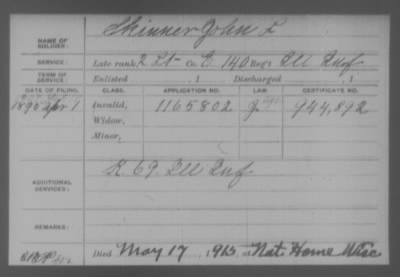 Skinner John F
NAME OF SOLDIER:
SERVICE: Late rank, 2 Lt Co. E 140 Reg't Ill Inf
TERM OF SERVICE: Enlisted , 1 Discharged , 1
DATE OF FILING. CLASS. APPLICATION NO. LAW. CERTIFICATE NO.
1895 Apr 1 Invalid, 1165802 944,892
Widow,
Minor,
ADDITIONAL SERVICES: K. 69. Ill Inf.
REMARKS:
Died May 17, 1913, at Nat. Home